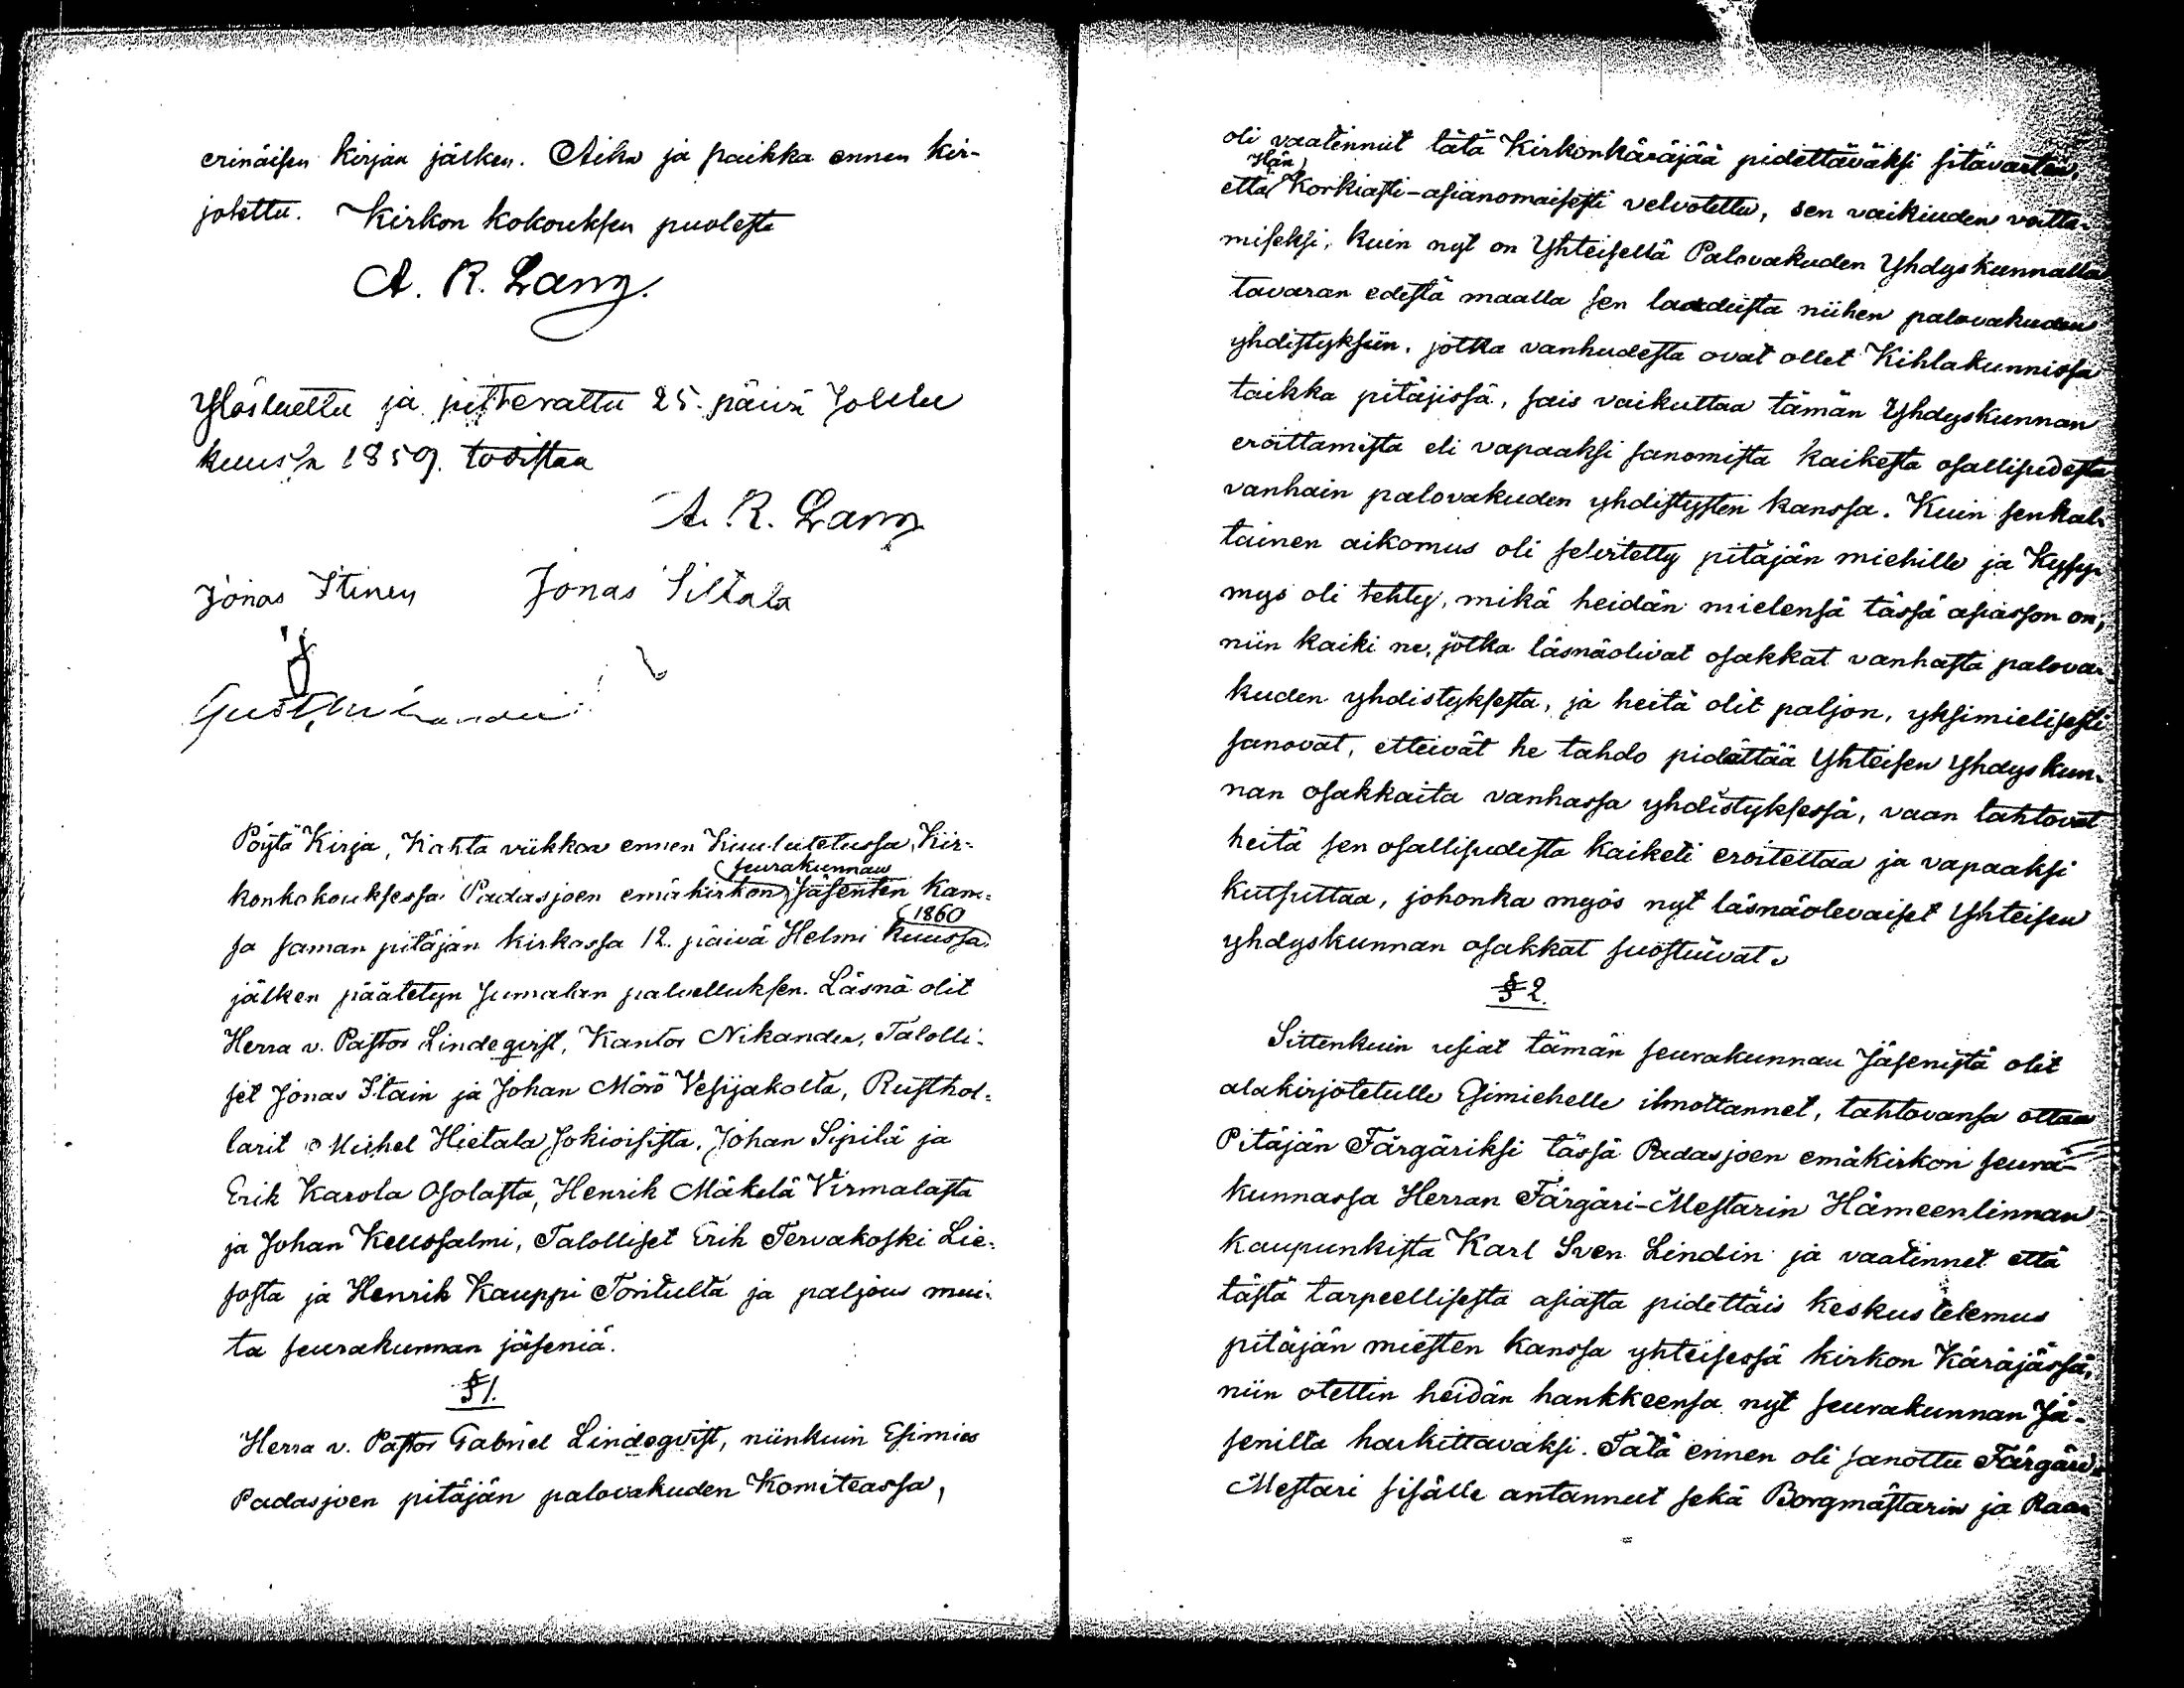 erinäisen kirjan jälken. Aika ja paikka ennen kir-
jotettu. Kirkon kokouksen puolesta
A. R. Lang.
Ylösluettu ja vastarattu 25. päivä Joulu
kuussa 1859. todistaa
A. R. Lang
Jonas Itinen Jonas Siltala
Pöytä Kirja, Kahta viikkoa ennen Kuulutetussa, Kir-
konkokouksessa Padasjoen emäkirkon seurakunnan Jäsenten kans-
sa saman pitäjän kirkossa 12. päivä Helmi kuussa 1860
jälken päätetyn Jumalan palvelluksen. Läsnä olit
Herra v. Pastor Lindeqvist, Kantor Nikander, Talolli-
set Jonas Itain ja Johan Mörö Vesijakolta, Rusthol-
larit Michel Hietala Jokioisista, Johan Sipilä ja
Erik Karola Osolasta, Henrik Mäkelä Virmalasta
ja Johan Kellosalmi, Talolliset Erik Tervakoski Lie-
sosta ja Henrik Kauppi Toritulta ja paljous mui-
ta seurakunnan jäseniä.
§ 1.
Herra v. Pastor Gabriel Lindeqvist, niinkuin Esimies
Padasjoen pitäjän palovakuden Komiteassa,
oli vaatinnut tätä Kirkonkäräjää pidettäväksi sitävarten,
että Hän Korkiasti-asianomaisesti velvotettu, sen vaikiuden voitta-
miseksi, kuin nyt on Yhteisellä Palovakuden Yhdyskunnalla
tavaran edestä maalla sen laadusta niihen palovakuden
yhdistyksiin, jotka vanhudesta ovat ollet Kihlakunnissa
taikka pitäjissä, sais vaikuttaa tämän Yhdyskunnan
eroittamista eli vapaaksi sanomista kaikesta osallisudesta
vanhain palovakuden yhdistysten kanssa. Kuin senkal-
tainen aikomus oli selvitetty pitäjän miehille ja Kysy-
mys oli tehty, mikä heidän mielensä tässä asiasson on,
niin kaiki ne, jotka läsnäolivat osakkat vanhasta palova-
kuden yhdistyksesta, ja heitä olit paljon, yksimielisesti
sanovat, etteivät he tahdo pidättää Yhteisen Yhdyskun-
nan osakkaita vanhassa yhdistyksessä, vaan tahtovat
heitä sen osallisudesta kaiketi eroitettaa ja vapaaksi
kutsuttaa, johonka myös nyt läsnäolevaiset Yhteisen
yhdyskunnan osakkat suostuivat.
§ 2.
Sittenkuin usiat tämän seurakunnan Jäsenistä olit
alakirjotetulle Esimiehelle ilmottannet, tahtovansa ottaa
Pitäjän Färgäriksi tässä Padasjoen emäkirkon seura-
kunnassa Herran Färgäri-Mestarin Hämeenlinnan
kaupunkista Karl Sven Lindin ja vaatinnet että
tästä tarpeellisesta asiasta pidettäis keskustelemus
pitäjän miesten kanssa yhteisessä kirkon Käräjässä,
niin otettin heidän hankkeensa nyt seurakunnan Jä-
senilta harkittavaksi. Tätä ennen oli sanottu Färgäri
Mestari sisälle antannut sekä Borgmästarin ja Raa-